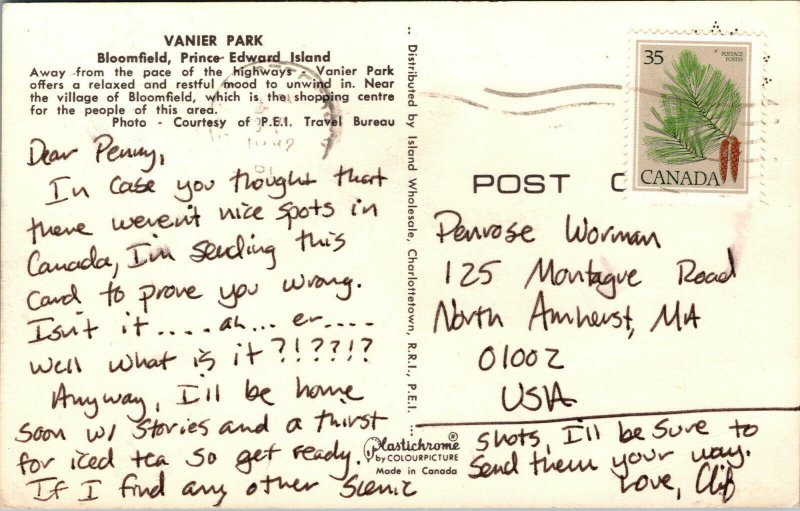 VANIER PARK
Bloomfield, Prince Edward Island
Away from the pace of the highways - Vanier Park
offers a relaxed and restful mood to unwind in. Near
the village of Bloomfield, which is the shopping centre
for the people of this area.
Photo - Courtesy of P.E.I. Travel Bureau
Dear Penny,
In case you thought that
there weren't nice spots in
Canada, I'm sending this
card to prove you wrong.
Isn't it .... ah... er....
well what is it?!??!?
Anyway, I'll be home
soon w/ stories and a thirst
for iced tea so get ready.
If I find any other scenic
shots, I'll be sure to
send them your way.
Love, Clif
Distributed by Island Wholesale, Charlottetown, R.R.1., P.E.I.
Plastichrome®
by COLOURPICTURE
Made in Canada
POST C
35
POSTAGE
POSTES
CANADA
Penrose Worman
125 Montague Road
North Amherst, MA
01002
USA